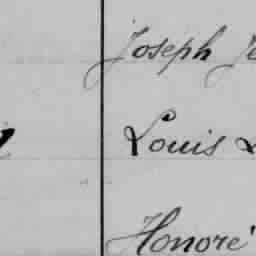 Joseph
Louis
Honoré